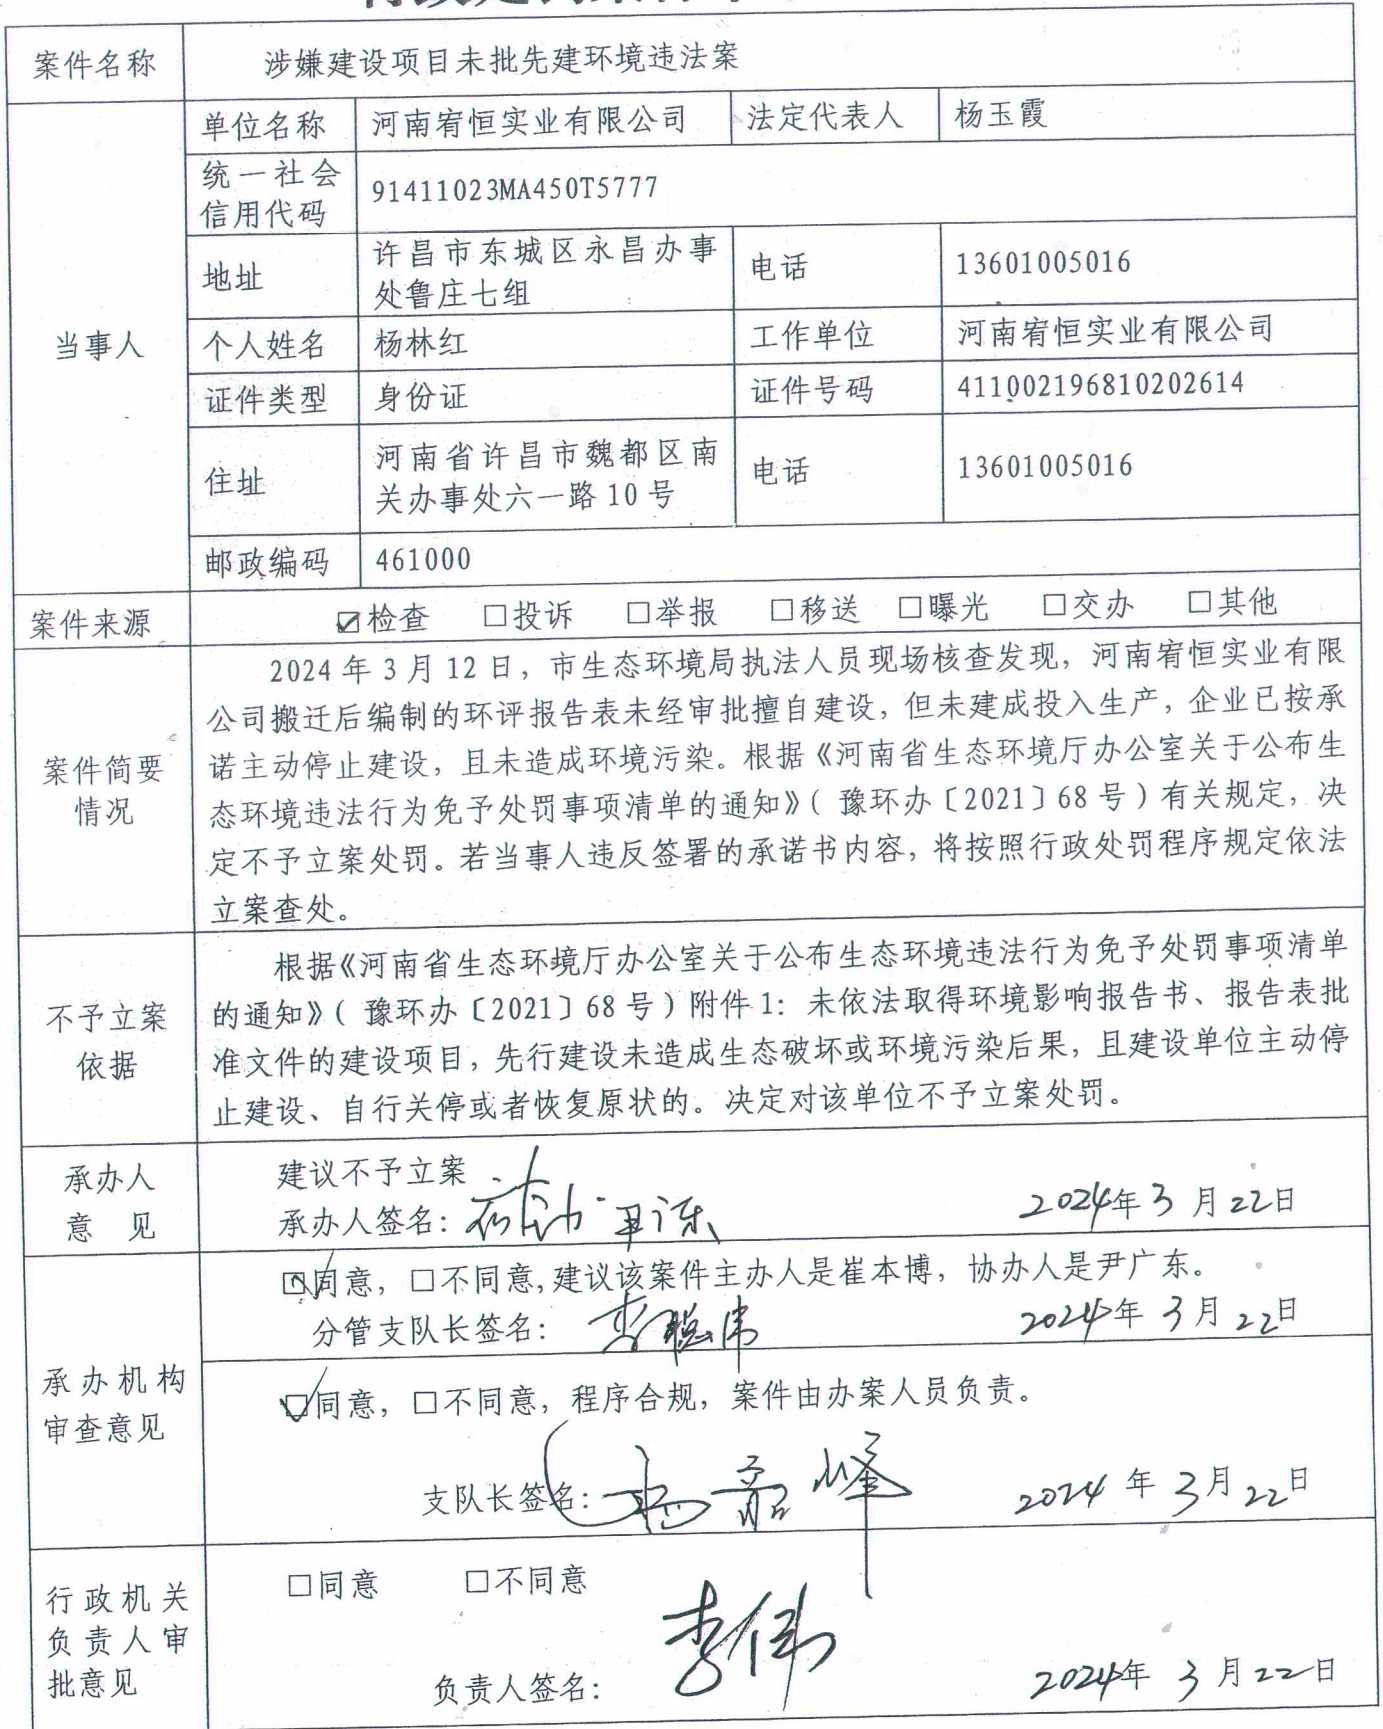 案件名称 涉嫌建设项目未批先建环境违法案
当事人
单位名称 河南宥恒实业有限公司 法定代表人 杨玉霞
统一社会
信用代码 91411023MA450T5777
地址 许昌市东城区永昌办事
处鲁庄七组 电话 13601005016
个人姓名 杨林红 工作单位 河南宥恒实业有限公司
证件类型 身份证 证件号码 411002196810202614
住址 河南省许昌市魏都区南
关办事处六一路10号 电话 13601005016
邮政编码 461000
案件来源 ☑检查 □投诉 □举报 □移送 □曝光 □交办 □其他
案件简要
情况
2024年3月12日，市生态环境局执法人员现场核查发现，河南宥恒实业有限
公司搬迁后编制的环评报告表未经审批擅自建设，但未建成投入生产，企业已按承
诺主动停止建设，且未造成环境污染。根据《河南省生态环境厅办公室关于公布生
态环境违法行为免予处罚事项清单的通知》（豫环办〔2021〕68号）有关规定，决
定不予立案处罚。若当事人违反签署的承诺书内容，将按照行政处罚程序规定依法
立案查处。
不予立案
依据
根据《河南省生态环境厅办公室关于公布生态环境违法行为免予处罚事项清单
的通知》（豫环办〔2021〕68号）附件1：未依法取得环境影响报告书、报告表批
准文件的建设项目，先行建设未造成生态破坏或环境污染后果，且建设单位主动停
止建设、自行关停或者恢复原状的。决定对该单位不予立案处罚。
承办人
意 见
建议不予立案
承办人签名： 2024年3月22日
承办机构
审查意见
☑同意，□不同意，建议该案件主办人是崔本博，协办人是尹广东。
分管支队长签名： 2024年3月22日
☑同意，□不同意，程序合规，案件由办案人员负责。
支队长签名：杨韶峰 2024年3月22日
行政机关
负责人审
批意见
□同意 □不同意
负责人签名：李伟 2024年3月22日